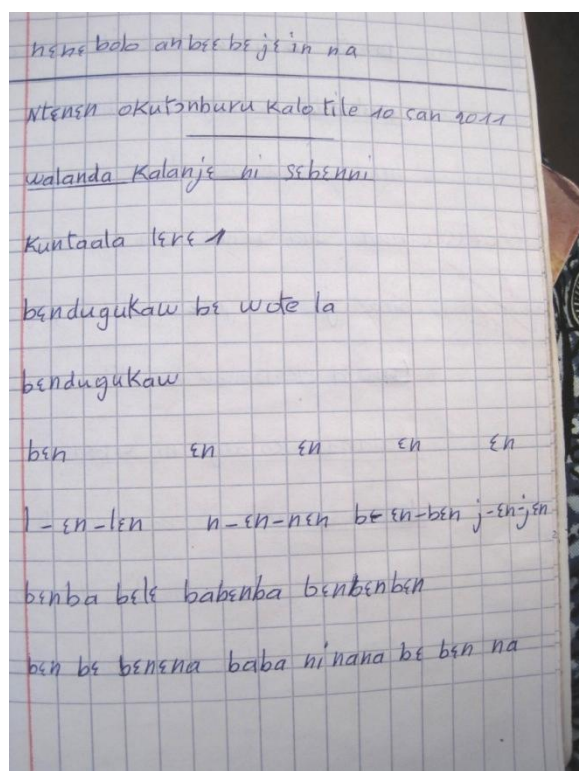 nɛnɛ bolo an bɛɛ bɛ jɛ in na
Ntɛnɛn okutɔnburu kalo tile 10 san 2011
walanda Kalanjɛ ni sɛbɛnni
Kuntaala lɛrɛ 1
bɛndugukaw bɛ wote la
bɛndugukaw
bɛn ɛn ɛn ɛn ɛn
l-ɛn-lɛn n-ɛn-nɛn b-ɛn-bɛn j-ɛn-jɛn
bɛnba bɛlɛ babɛnba bɛnbɛnbɛn
bɛn bɛ bɛnɛna baba ni nana bɛ bɛn na